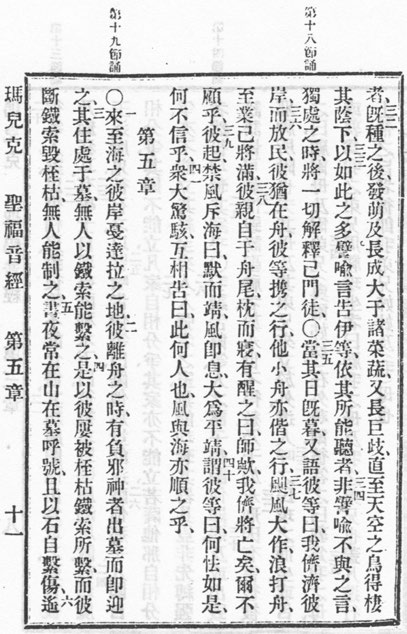 第十八節誦
第十九節誦
三二
者旣種之後發萌及長成大于諸菜蔬又長巨歧直至天空之鳥得棲
三三 三四
其蔭下以如此之多譬喻言吿伊等依其所能聽者非譬喻不與之言
三五
獨處之時將一切解釋己門徒〇當其日旣暮又語彼等曰我儕濟彼
三六 三七
岸而放民彼猶在舟彼等携之行他小舟亦偕之行颶風大作浪打舟
三八
至業已將滿彼親自于舟尾枕而寢有醒之曰師歟我儕將亡矣爾不
三九 四十
顧乎彼起禁風斥海曰默而靖風卽息大爲平靖謂彼等曰何怯如是
四一
何不信乎衆大驚駭互相吿曰此何人也風與海亦順之乎
第五章
一 二
〇來至海之彼岸戞達拉之地彼離舟之時有負邪神者出墓而卽迎
三 四
之其住處于墓無人以鐵索能繫之是以彼屢被桎枯鐵索所繫而彼
五 六
斷鐵索毀桎枯無人能制之晝夜常在山在墓呼號且以石自繫傷遙
瑪兒克 聖福音經 第五章 十一